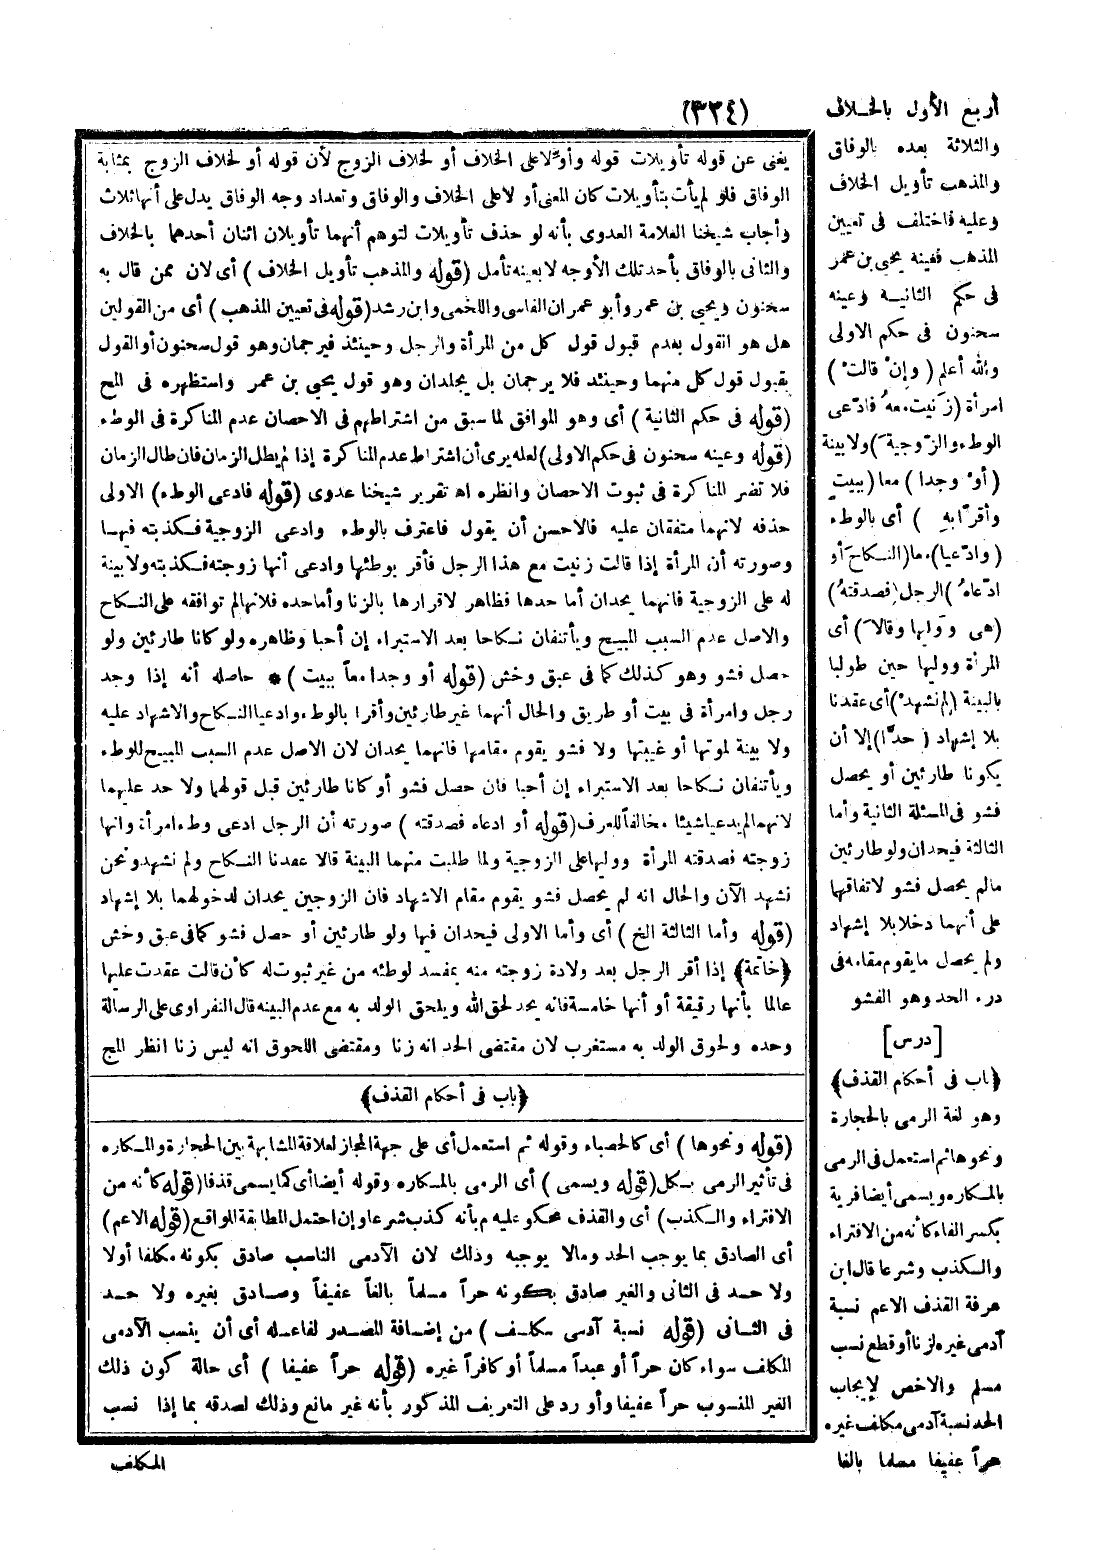 (٣٢٤)
يغنى عن قوله تأويلات قوله وأوّلا على الخلاف أو لخلاف الزوج لأن قوله أو لخلاف الزوج بمثابة
الوفاق فلو لم يأت بتأويلات كان المعنى أو لا على الخلاف والوفاق وتعداد وجه الوفاق يدل على أنها ثلاث
وأجاب شيخنا العلامة العدوى بأنه لو حذف تأويلات لتوهم أنهما تأويلان اثنان أحدهما بالخلاف
والثانى بالوفاق بأحد تلك الأوجه لا بعينه تأمل (قوله والمذهب تأويل الخلاف) أى لان ممن قال به
سحنون ويحيى بن عمر وأبو عمران الفاسى واللخمى وابن رشد (قوله فى تعيين المذهب) أى من القولين
هل هو القول بعدم قبول قول كل من المرأة والرجل وحينئذ فيرجمان وهو قول سحنون أو القول
بقبول قول كل منهما وحينئذ فلا يرجمان بل يجلدان وهو قول يحيى بن عمر واستظهره فى المج
(قوله فى حكم الثانية) أى وهو الموافق لما سبق من اشتراطهم فى الاحصان عدم المناكرة فى الوطء
(قوله وعينه سحنون فى حكم الاولى) لعله يرى أن اشتراط عدم المناكرة إذا لم يطل الزمان فان طال الزمان
فلا تضر المناكرة فى ثبوت الاحصان وانظره اه تقرير شيخنا عدوى (قوله فادعى الوطء) الاولى
حذفه لانهما متفقان عليه فالاحسن أن يقول فاعترف بالوطء وادعى الزوجية فكذبته فيها
وصورته أن المرأة إذا قالت زنيت مع هذا الرجل فأقر بوطئها وادعى أنها زوجته فكذبته ولا بينة
له على الزوجية فانهما يحدان أما حدها فظاهر لاقرارها بالزنا وأما حده فلانها لم توافقه على النكاح
والاصل عدم السبب المبيح ويأتنفان نكاحا بعد الاستبراء إن أحبا وظاهره ولو كانا طارئين ولو
حصل فشو وهو كذلك كما فى عبق وخش (قوله أو وجدا معاً ببيت) * حاصله أنه إذا وجد
رجل وامرأة فى بيت أو طريق والحال أنهما غير طارئين وأقرا بالوطء وادعيا النكاح والاشهاد عليه
ولا بينة لموتها أو غيبتها ولا فشو يقوم مقامها فانهما يحدان لان الاصل عدم السبب المبيح للوطء
ويأتنفان نكاحا بعد الاستبراء إن أحبا فان حصل فشو أو كانا طارئين قبل قولهما ولا حد عليهما
لانهما لم يدعيا شيئا مخالفاً للعرف (قوله أو ادعاه فصدقته) صورته أن الرجل ادعى وطء امرأة وانها
زوجته فصدقته المرأة ووليها على الزوجية ولما طلبت منهما البينة قالا عقدنا النكاح ولم نشهد ونحن
نشهد الآن والحال انه لم يحصل فشو يقوم مقام الاشهاد فان الزوجين يحدان لدخولهما بلا إشهاد
(قوله وأما الثالثة الخ) أى وأما الاولى فيحدان فيها ولو طارئين أو حصل فشو كما فى عبق وخش
﴿خاتمة﴾ إذا أقر الرجل بعد ولادة زوجته منه بمفسد لوطئه من غير ثبوت له كأن قالت عقدت عليها
عالما بأنها رقيقة أو أنها خامسة فانه يحد لحق الله ويلحق الولد به مع عدم البينه قال النفراوى على الرسالة
وحده ولحوق الولد به مستغرب لان مقتضى الحد انه زنا ومقتضى اللحوق انه ليس زنا انظر المج
﴿باب فى أحكام القذف﴾
(قوله ونحوها) أى كالحصباء وقوله ثم استعمل أى على جهة المجاز لعلاقة المشابهة بين الحجارة والمكاره
فى تأثير الرمى بكل (قوله ويسمى) أى الرمى بالمكاره وقوله أيضا أى كما يسمى قذفا (قوله كأنه من
الافتراء والكذب) أى والقذف محكوم عليه بأنه كذب شرعا وإن احتمل المطابقة للواقع (قوله الاعم)
أى الصادق بما يوجب الحد ومالا يوجبه وذلك لان الآدمى الناسب صادق بكونه مكلفا أولا
ولا حد فى الثانى والغير صادق بكونه حراً مسلماً بالغاً عفيفاً وصادق بغيره ولا حد
فى الثانى (قوله نسبة آدمى مكلف) من إضافة المصدر لفاعله أى أن ينسب الآدمى
المكلف سواء كان حراً أو عبداً مسلماً أو كافراً غيره (قوله حراً عفيفا) أى حالة كون ذلك
الغير المنسوب حراً عفيفا وأورد على التعريف المذكور بأنه غير مانع وذلك لصدقه بما إذا نسب
المكلف
أربع الأول بالخلاف
والثلاثة بعده بالوفاق
والمذهب تأويل الخلاف
وعليه فاختلف فى تعيين
المذهب فعينه يحيى بن عمر
فى حكم الثانية وعينه
سحنون فى حكم الاولى
والله أعلم (وإنْ قالتْ)
امرأة (زَنيت معهُ فادّعى
الوطء والزّوجيةَ) ولا بينة
(أوْ وجدا) معا (ببيتٍ
وأقرّا بهِ) أى بالوطء
(وادّعيا) معا (النكاحَ أو
ادّعاهُ) الرجل (فصدّقتهُ)
(هى ووليها وقالاَ) أى
المرأة ووليها حين طولبا
بالبينة (لم نشهدْ) أى عقدنا
بلا إشهاد (حدّا) إلا أن
يكونا طارئين أو يحصل
فشو فى المسئلة الثانية وأما
الثالثة فيحدان ولو طارئين
مالم يحصل فشو لاتفاقها
على أنهما دخلا بلا إشهاد
ولم يحصل ما يقوم مقامه فى
درء الحد وهو الفشو
[درس]
﴿باب فى أحكام القذف﴾
وهو لغة الرمى بالحجارة
ونحوها ثم استعمل فى الرمى
بالمكاره ويسمى أيضا فرية
بكسر الفاء كأنه من الافتراء
والكذب وشرعا قال ابن
عرفة القذف الاعم نسبة
آدمى غيره لزنا أو قطع نسب
مسلم والاخص لإيجاب
الحد نسبة آدمى مكلف غيره
حراً عفيفا مسلما بالغا